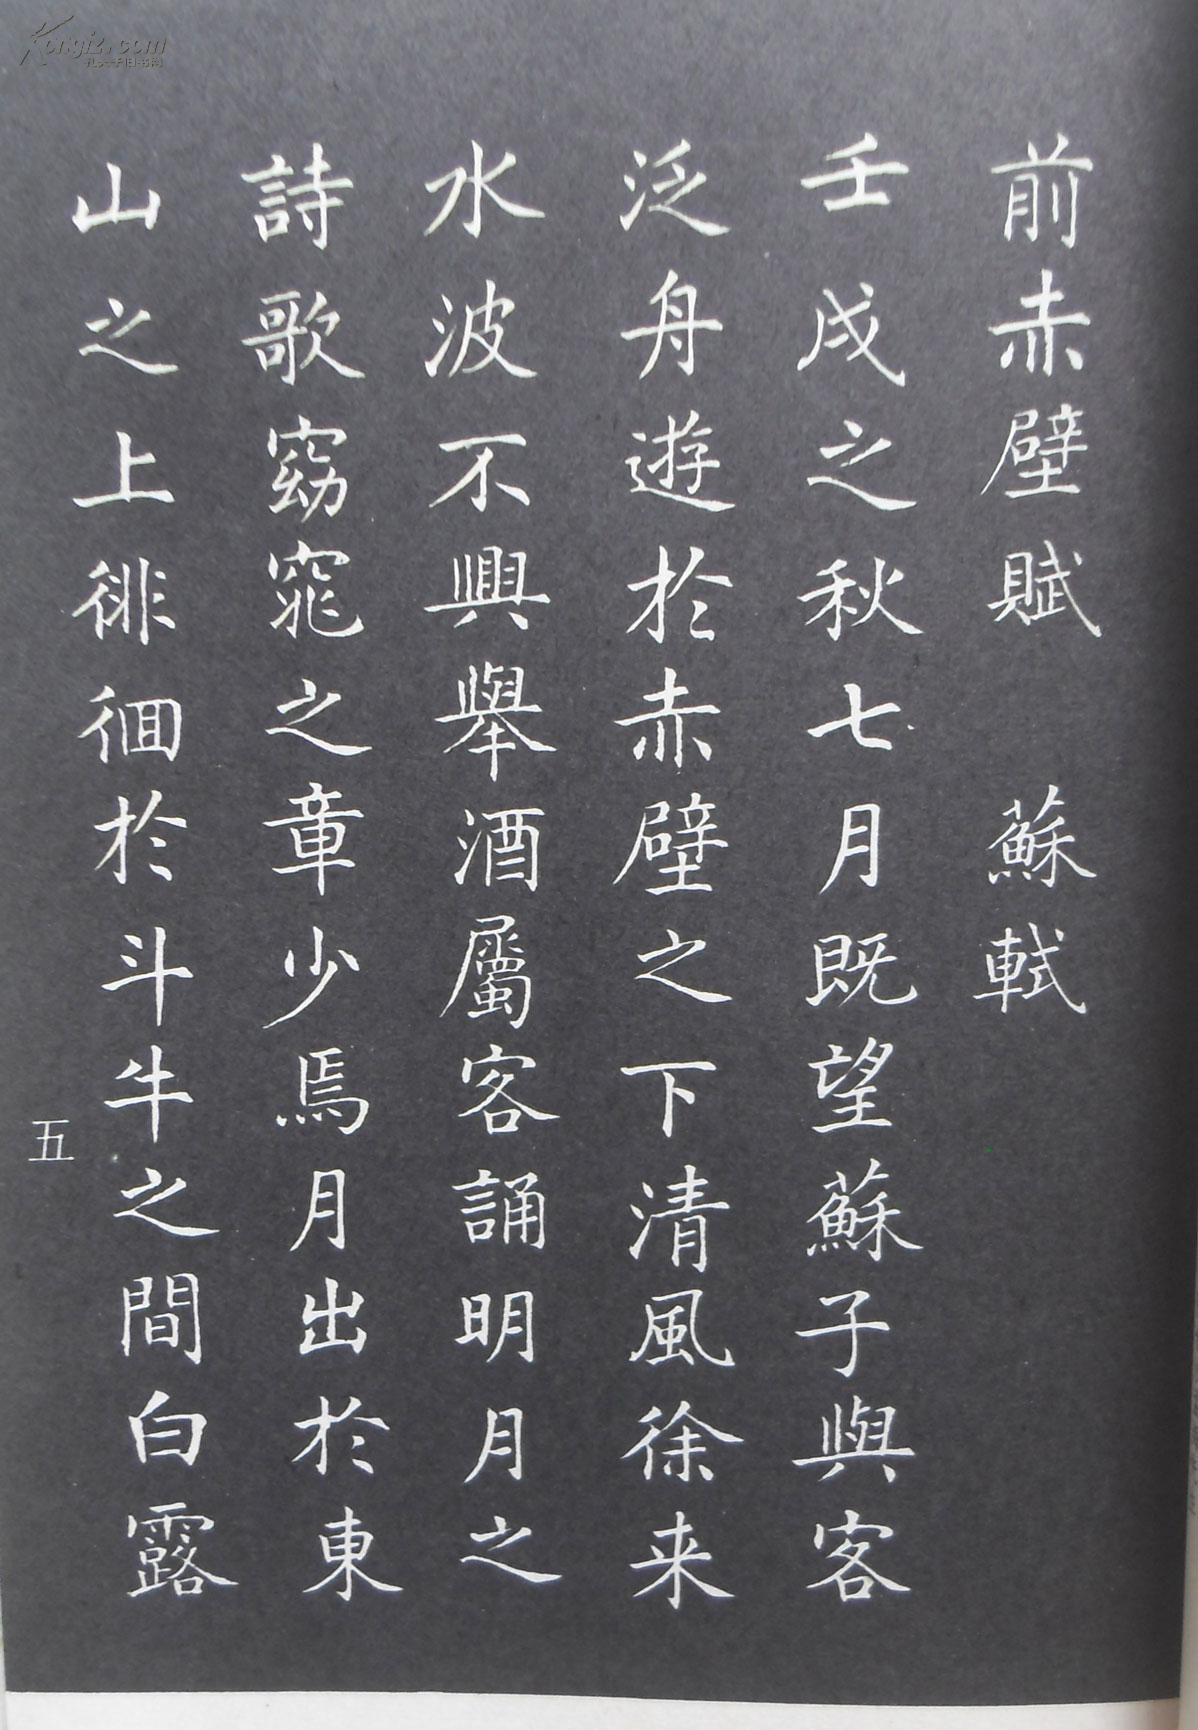 前赤壁賦 蘇軾
壬戌之秋七月既望蘇子與客
泛舟遊於赤壁之下清風徐来
水波不興舉酒屬客誦明月之
詩歌窈窕之章少焉月出於東
山之上徘徊於斗牛之間白露
五
Kongfz.com
孔夫子旧书网